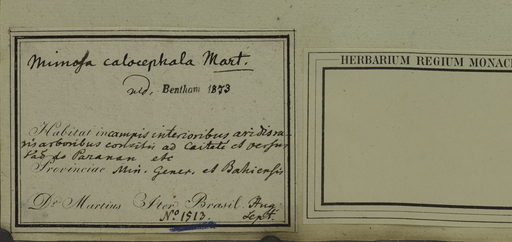 Mimosa calocephala Mart.
vid. Bentham 1873
HERBARIUM REGIUM MONAC
Habitat in campis interioribus aridis ra-
ris arboribus consitis ad Caitete et versus
Vão do Paranan etc
Provinciae Min. Gener. et Bahiensis
Dr Martius Iter Brasil. Aug
Sept.
No 1513.